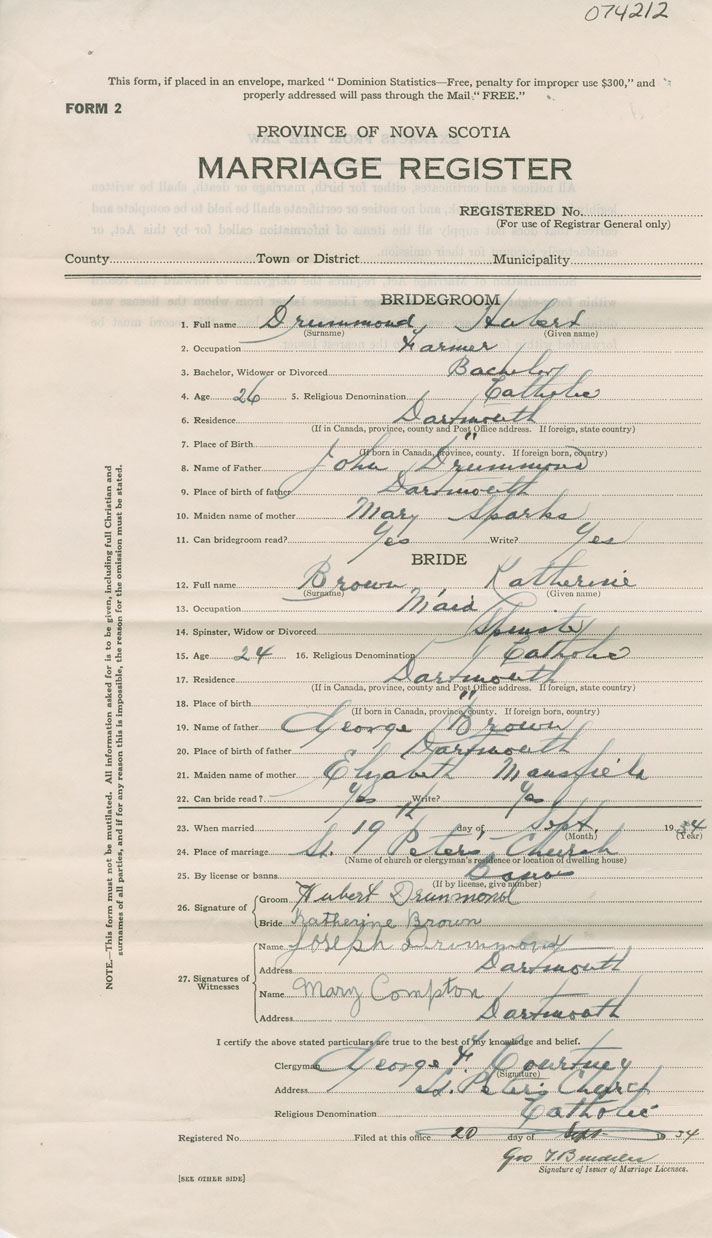 074212
This form, if placed in an envelope, marked “ Dominion Statistics—Free, penalty for improper use $300,” and
properly addressed will pass through the Mail “ FREE.”
FORM 2
PROVINCE OF NOVA SCOTIA
MARRIAGE REGISTER
REGISTERED No.
(For use of Registrar General only)
County Town or District Municipality
BRIDEGROOM
1. Full name Drummond, Hubert
(Surname) (Given name)
2. Occupation Farmer
3. Bachelor, Widower or Divorced Bachelor
4. Age 26 5. Religious Denomination Catholic
6. Residence Dartmouth
(If in Canada, province, county and Post Office address. If foreign, state country)
7. Place of Birth "
(If born in Canada, province, county. If foreign born, country)
8. Name of Father John Drummond
9. Place of birth of father Dartmouth
10. Maiden name of mother Mary Sparks
11. Can bridegroom read? Yes Write? Yes
BRIDE
12. Full name Brown Katherine
(Surname) (Given name)
13. Occupation Maid
14. Spinster, Widow or Divorced Spinster
15. Age 24 16. Religious Denomination Catholic
17. Residence Dartmouth
(If in Canada, province, county and Post Office address. If foreign, state country)
18. Place of birth "
(If born in Canada, province, county. If foreign born, country)
19. Name of father George Brown
20. Place of birth of father Dartmouth
21. Maiden name of mother Elizabeth Mansfield
22. Can bride read? Yes Write? Yes
23. When married 19th day of Sept. 1934
(Month) (Year)
24. Place of marriage St. Peter's Church
(Name of church or clergyman's residence or location of dwelling house)
25. By license or banns Banns
(If by license, give number)
26. Signature of Groom Hubert Drummond
Bride Katherine Brown
27. Signatures of Witnesses
Name Joseph Drummond
Address Dartmouth
Name Mary Compton
Address Dartmouth
I certify the above stated particulars are true to the best of my knowledge and belief.
Clergyman George F. Courtney
(Signature)
Address St. Peter's Church
Religious Denomination Catholic
Registered No. Filed at this office 20 day of Sept. 19 34
Geo
Signature of Issuer of Marriage Licenses.
[SEE OTHER SIDE]
NOTE.—This form must not be mutilated. All information asked for is to be given, including full Christian and
surnames of all parties, and if for any reason this is impossible, the reason for the omission must be stated.